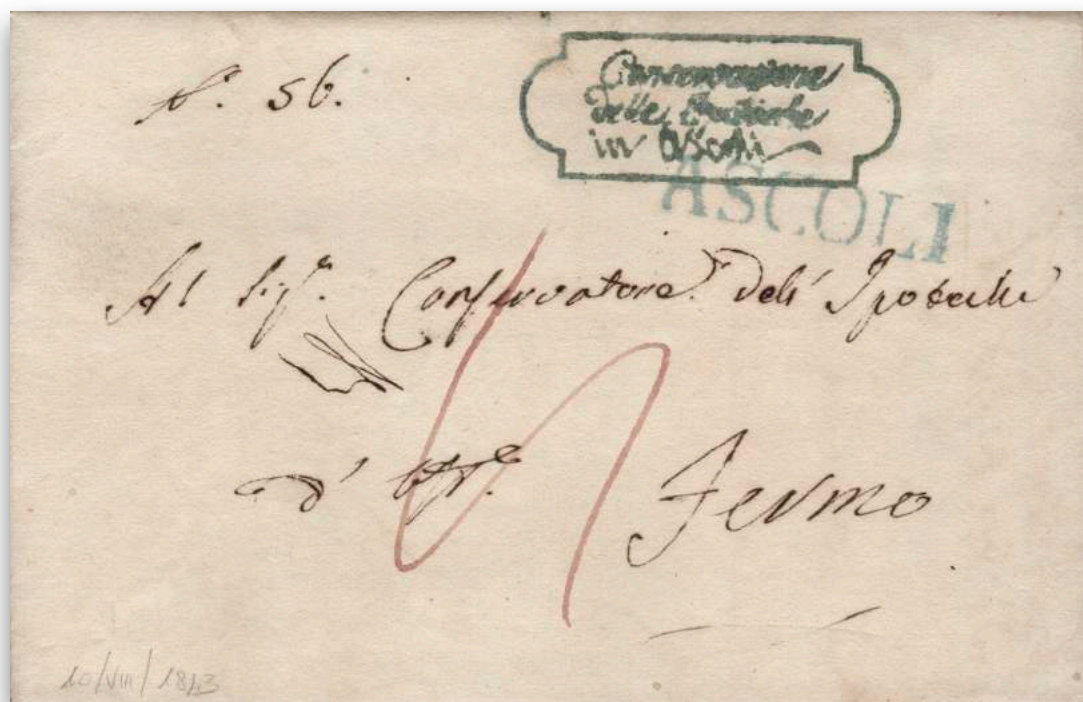 N. 56.
Conservazione
delle Ipoteche
in Ascoli
ASCOLI
Al Sig.r Conservatore dell' Ipoteche
d' Uff.o Fermo
10/VIII/1843